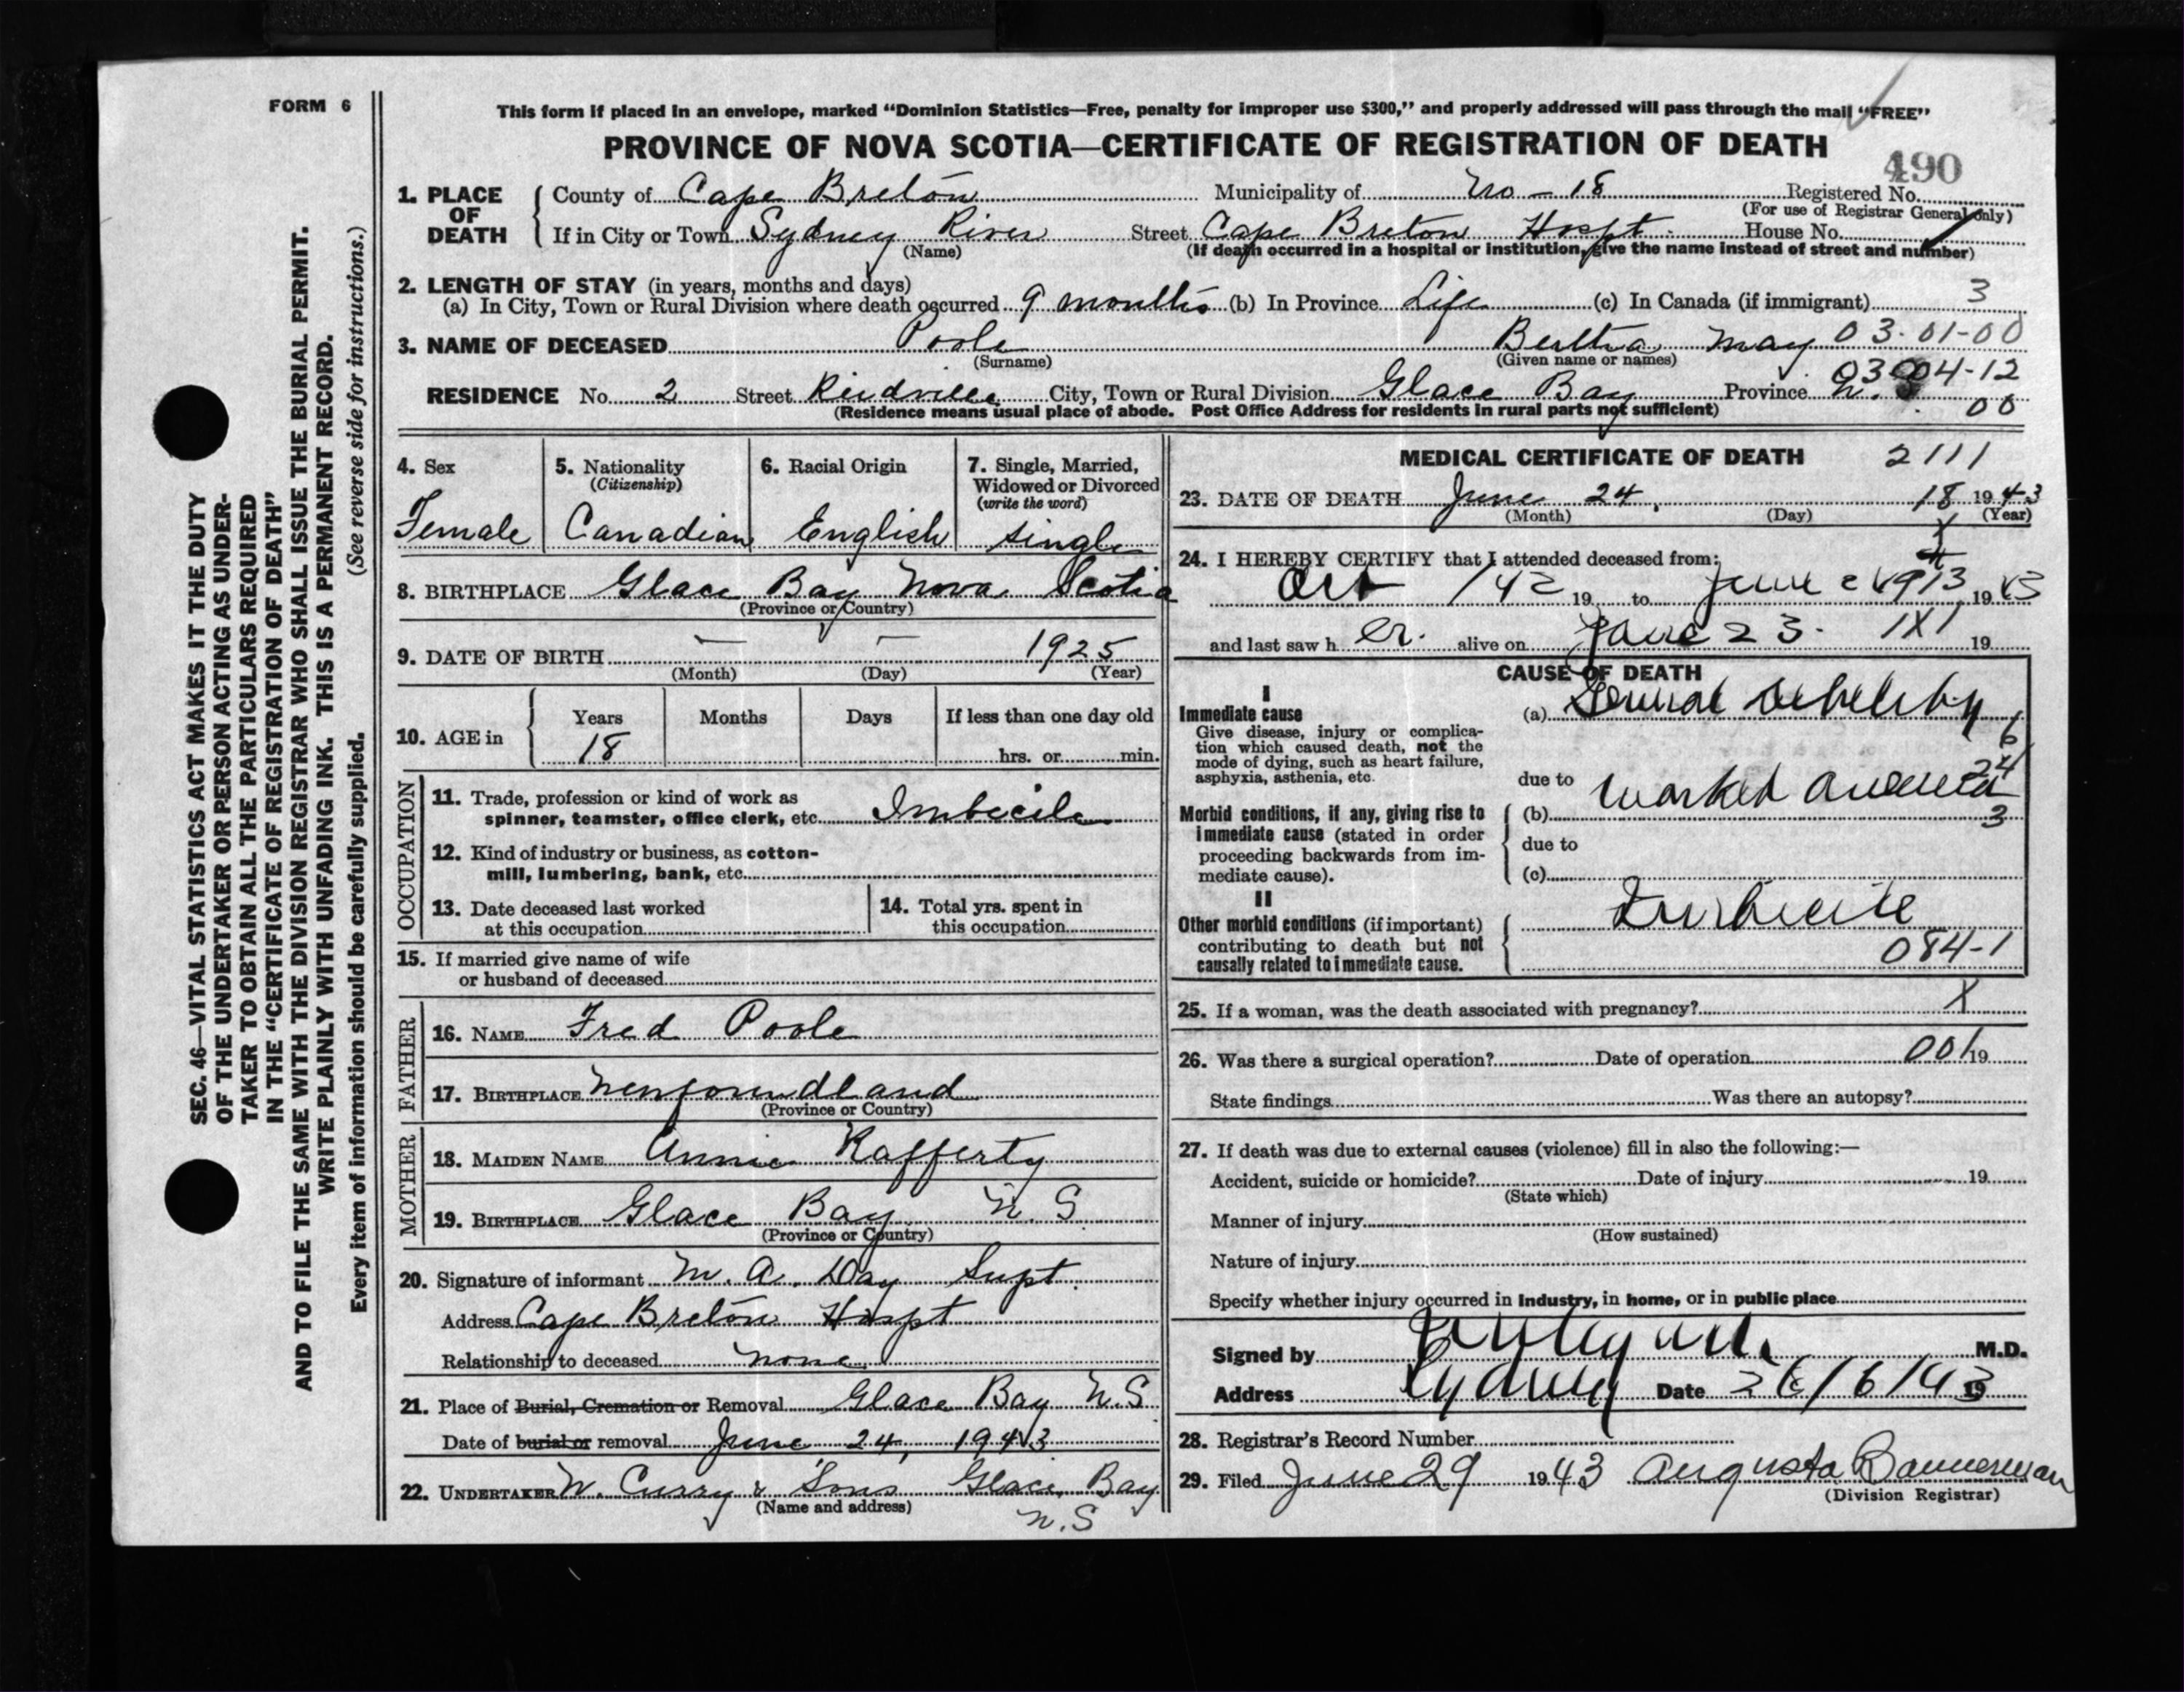 FORM 6
This form if placed in an envelope, marked “Dominion Statistics—Free, penalty for improper use $300,” and properly addressed will pass through the mail “FREE”
PROVINCE OF NOVA SCOTIA—CERTIFICATE OF REGISTRATION OF DEATH
490
1. PLACE OF DEATH
County of Cape Breton Municipality of No - 18 Registered No.
(For use of Registrar General only)
If in City or Town Sydney River Street Cape Breton Hospt. House No.
(Name) (If death occurred in a hospital or institution, give the name instead of street and number)
2. LENGTH OF STAY (in years, months and days)
(a) In City, Town or Rural Division where death occurred 9 months (b) In Province Life (c) In Canada (if immigrant) 3
3. NAME OF DECEASED Poole Bertha May 03-01-00
(Surname) (Given name or names)
03 04-12
RESIDENCE No. 2 Street City, Town or Rural Division Glace Bay Province N.S
(Residence means usual place of abode. Post Office Address for residents in rural parts not sufficient) 00
4. Sex
Female
5. Nationality
(Citizenship)
Canadian
6. Racial Origin
English
7. Single, Married,
Widowed or Divorced
(write the word)
single
8. BIRTHPLACE Glace Bay Nova Scotia
(Province or Country)
9. DATE OF BIRTH — — 1925
(Month) (Day) (Year)
10. AGE in
Years Months Days If less than one day old
18 hrs. or min.
OCCUPATION
11. Trade, profession or kind of work as
spinner, teamster, office clerk, etc. Imbecile
12. Kind of industry or business, as cotton-
mill, lumbering, bank, etc.
13. Date deceased last worked
at this occupation
14. Total yrs. spent in
this occupation
15. If married give name of wife
or husband of deceased
FATHER
16. NAME Fred Poole
17. BIRTHPLACE Newfoundland
(Province or Country)
MOTHER
18. MAIDEN NAME Annie Rafferty
19. BIRTHPLACE Glace Bay N. S.
(Province or Country)
20. Signature of informant M. A. Day Supt.
Address Cape Breton Hospt
Relationship to deceased none
21. Place of Burial, Cremation or Removal Glace Bay N.S
Date of burial or removal June 24, 1943
22. UNDERTAKER W. Curry & Sons Glace Bay
(Name and address) N.S
MEDICAL CERTIFICATE OF DEATH 2111
23. DATE OF DEATH June 24, 18 1943
(Month) (Day) (Year)
24. I HEREBY CERTIFY that I attended deceased from:
Oct /42 19 to June 19 43
and last saw h er. alive on June 23. 1X1 19
CAUSE OF DEATH
I
Immediate cause
Give disease, injury or complica-
tion which caused death, not the
mode of dying, such as heart failure,
asphyxia, asthenia, etc.
(a) General debility
6
24
due to
Marked anemia
Morbid conditions, if any, giving rise to
immediate cause (stated in order
proceeding backwards from im-
mediate cause).
(b) 3
due to
(c)
II
Other morbid conditions (if important)
contributing to death but not
causally related to immediate cause.
Imbecile
084-1
25. If a woman, was the death associated with pregnancy? X
26. Was there a surgical operation? Date of operation 001 19
State findings Was there an autopsy?
27. If death was due to external causes (violence) fill in also the following:—
Accident, suicide or homicide? Date of injury 19
(State which)
Manner of injury
(How sustained)
Nature of injury
Specify whether injury occurred in Industry, in home, or in public place
Signed by M.D.
Address Sydney Date 26/6/43 19
28. Registrar's Record Number
29. Filed June 29 1943 Augusta Bannerman
(Division Registrar)
SEC. 46—VITAL STATISTICS ACT MAKES IT THE DUTY
OF THE UNDERTAKER OR PERSON ACTING AS UNDER-
TAKER TO OBTAIN ALL THE PARTICULARS REQUIRED
IN THE “CERTIFICATE OF REGISTRATION OF DEATH”
AND TO FILE THE SAME WITH THE DIVISION REGISTRAR WHO SHALL ISSUE THE BURIAL PERMIT.
WRITE PLAINLY WITH UNFADING INK. THIS IS A PERMANENT RECORD.
Every item of information should be carefully supplied. (See reverse side for instructions.)